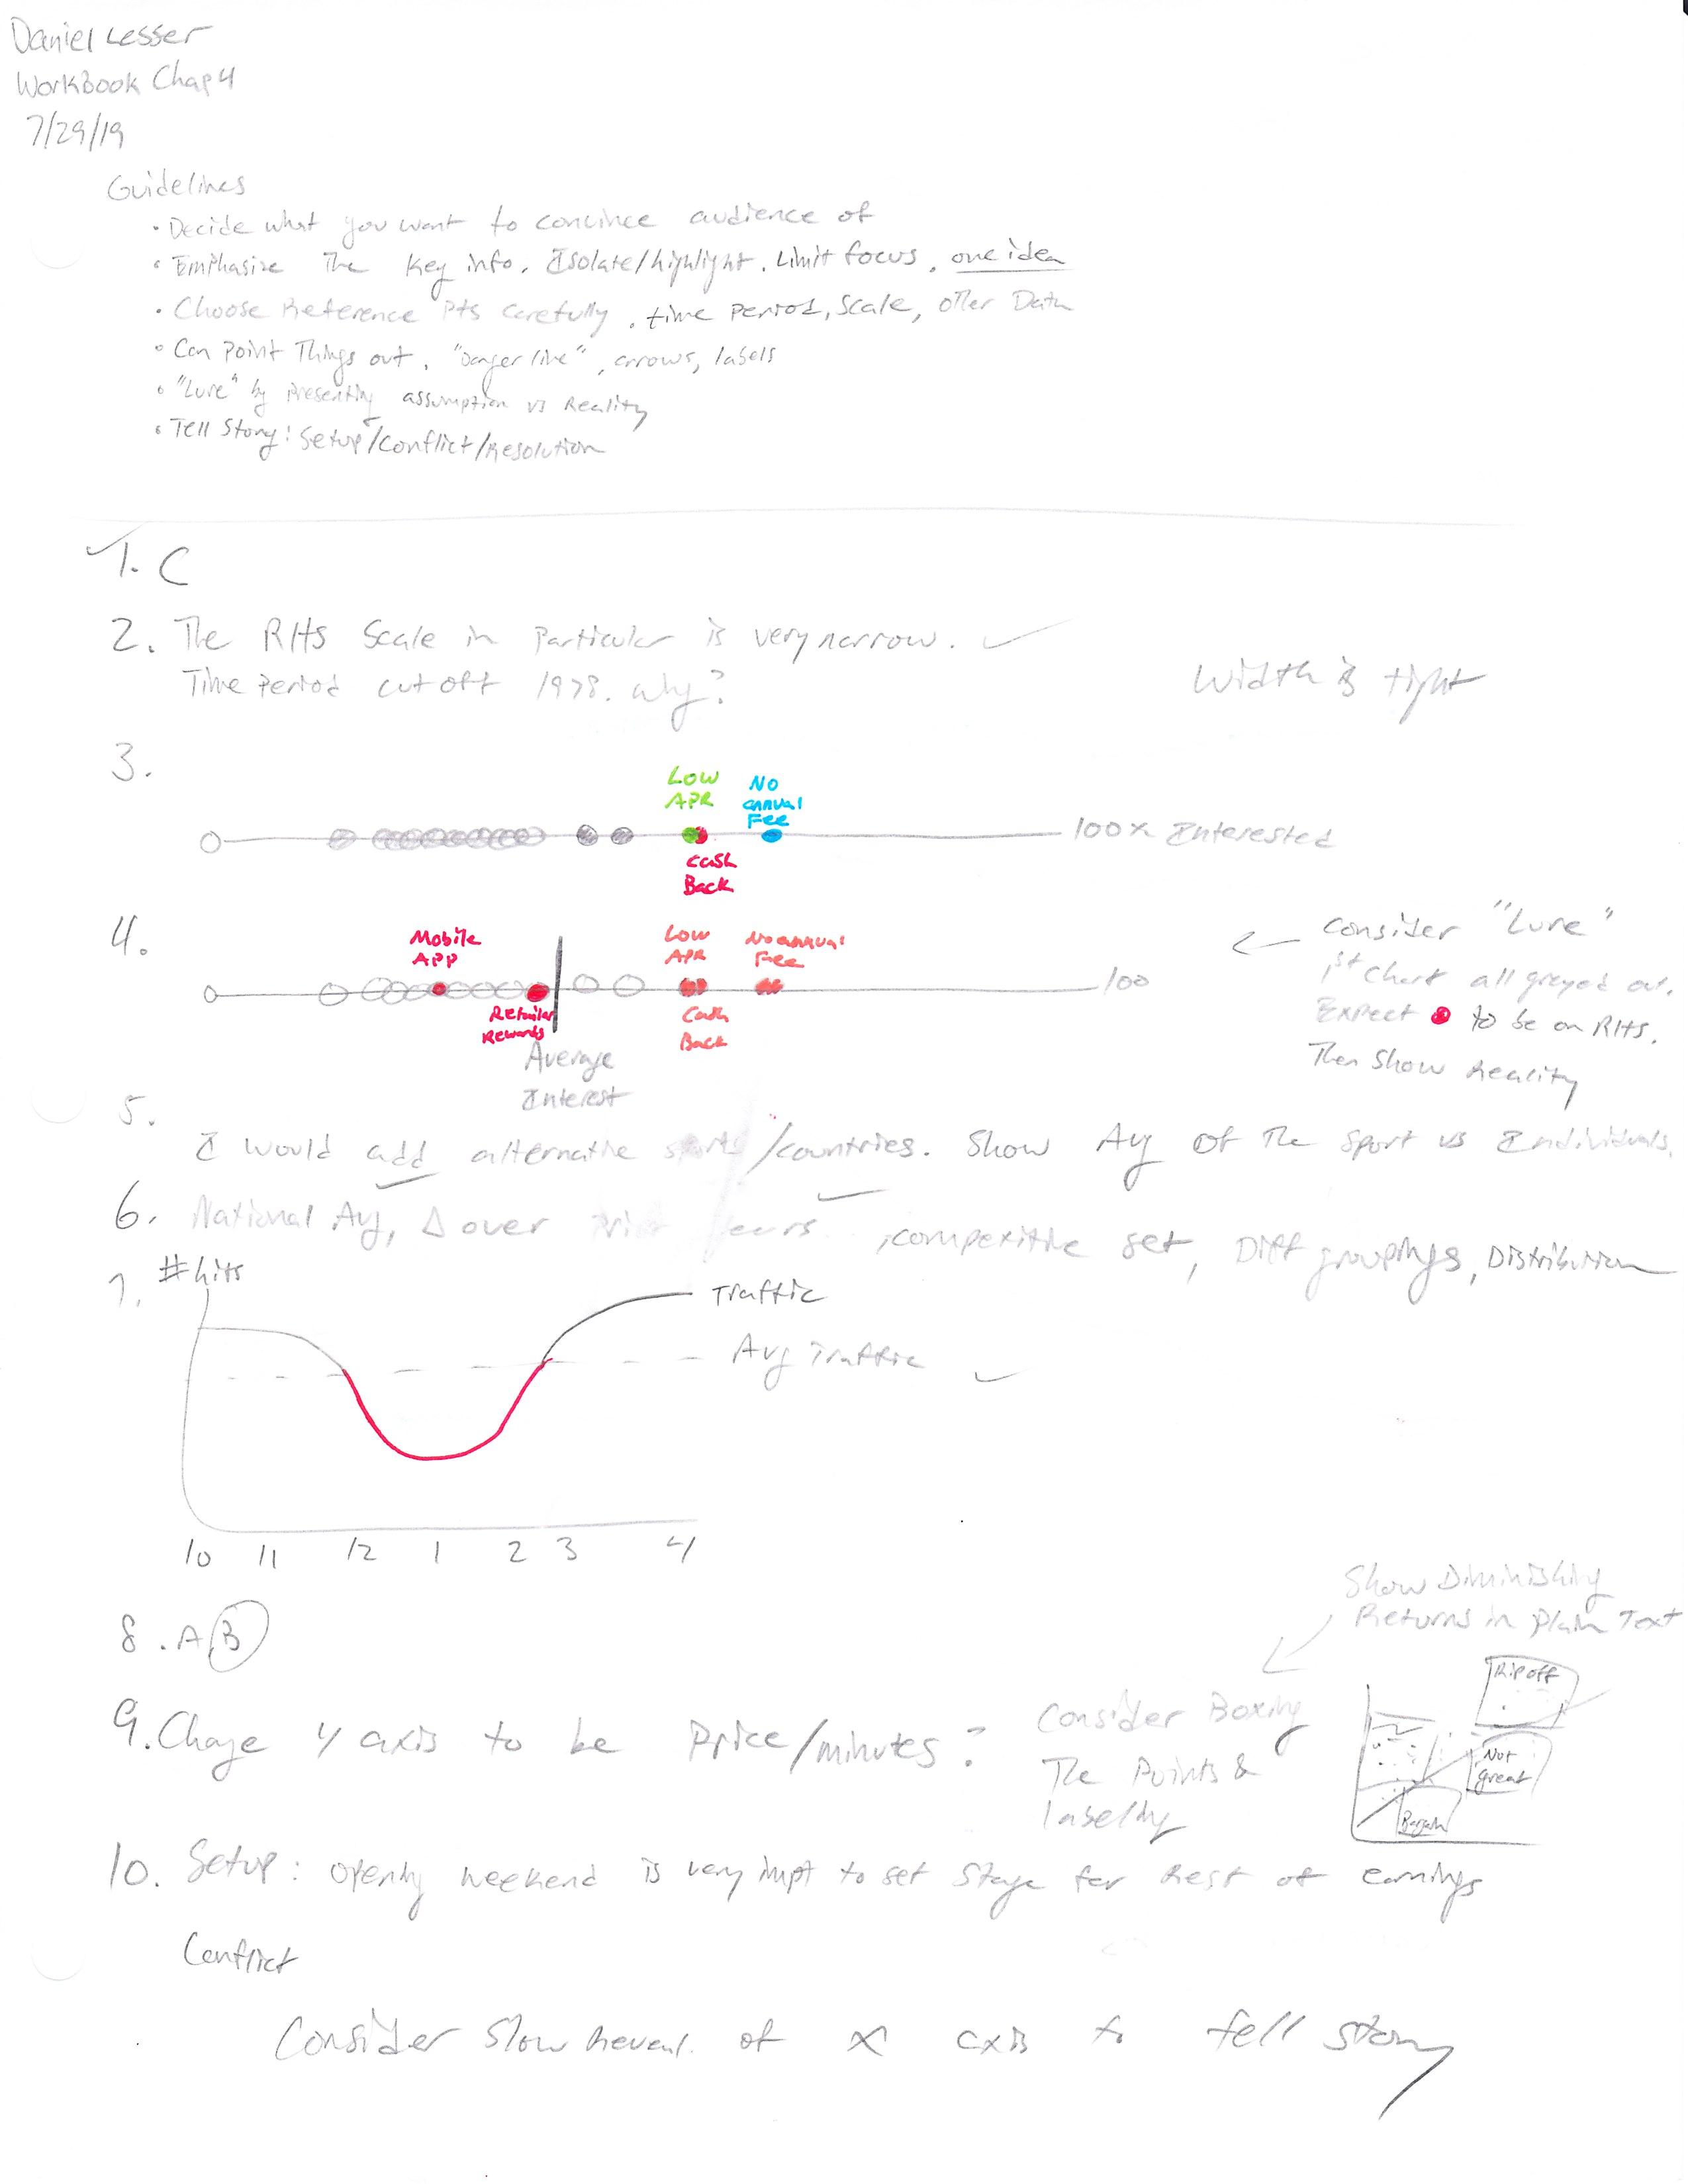 Daniel Lesser
WorkBook Chap 4
7/29/19
Guidelines
• Decide what you want to convince audience of
• Emphasize The Key info. Isolate/highlight. Limit focus. one idea
• Choose Reference Pts carefully. time period, scale, other Data
• Can Point Things out. "Danger line", arrows, labels
• "Lure" by Presenting assumption vs Reality
• Tell Story: Setup/Conflict/Resolution
1. C
2. The RHS Scale in Particular is very narrow.
Time Period cut off 1978. Why?
Width is tight
3.
Low APR
No annual Fee
0
100% Interested
Cash Back
4.
Mobile APP
Low APR
No annual Fee
0
100
Retailer Rewards
Cash Back
Average Interest
Consider "Lure"
1st Chart all greyed out.
Expect to be on RHS.
Then Show Reality
5.
I would add alternative sports/countries. Show Avg of The Sport vs Individuals.
6. National Avg, Δ over Prior Years, competitive set, Diff groupings, Distribution
7. # hits
Traffic
Avg Traffic
10 11 12 1 2 3 4
8. A, B
Show Diminishing
Returns in Plain Text
9. Change y axis to be Price/minutes?
Consider Boxing
The Points &
labeling
Rip off
Not great
Bargain
10. Setup: opening weekend is very impt to set Stage for Rest of earnings
Conflict
Consider Slow Reveal of x axis to tell story